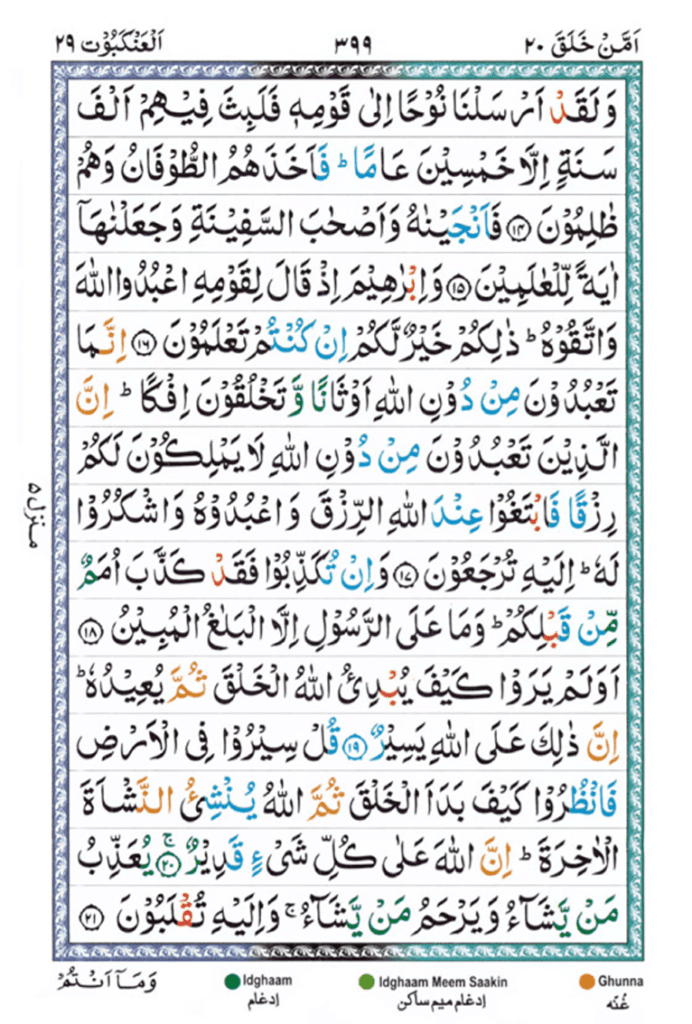 اَمَّنْ خَلَقَ ٢٠ ٣٩٩ اَلْعَنْكَبُوْت ٢٩
وَلَقَدْ اَرْسَلْنَا نُوْحًا اِلٰى قَوْمِهٖ فَلَبِثَ فِيْهِمْ اَلْفَ
سَنَةٍ اِلَّا خَمْسِيْنَ عَامًا ؕ فَاَخَذَهُمُ الطُّوْفَانُ وَهُمْ
ظٰلِمُوْنَ ﴿١٤﴾ فَاَنْجَيْنٰهُ وَاَصْحٰبَ السَّفِيْنَةِ وَجَعَلْنٰهَاۤ
اٰيَةً لِّلْعٰلَمِيْنَ ﴿١٥﴾ وَاِبْرٰهِيْمَ اِذْ قَالَ لِقَوْمِهِ اعْبُدُوا اللّٰهَ
وَاتَّقُوْهُ ؕ ذٰلِكُمْ خَيْرٌ لَّكُمْ اِنْ كُنْتُمْ تَعْلَمُوْنَ ﴿١٦﴾ اِنَّمَا
تَعْبُدُوْنَ مِنْ دُوْنِ اللّٰهِ اَوْثَانًا وَّتَخْلُقُوْنَ اِفْكًا ؕ اِنَّ
الَّذِيْنَ تَعْبُدُوْنَ مِنْ دُوْنِ اللّٰهِ لَا يَمْلِكُوْنَ لَكُمْ
رِزْقًا فَابْتَغُوْا عِنْدَ اللّٰهِ الرِّزْقَ وَاعْبُدُوْهُ وَاشْكُرُوْا
لَهٗ ؕ اِلَيْهِ تُرْجَعُوْنَ ﴿١٧﴾ وَاِنْ تُكَذِّبُوْا فَقَدْ كَذَّبَ اُمَمٌ
مِّنْ قَبْلِكُمْ ؕ وَمَا عَلَى الرَّسُوْلِ اِلَّا الْبَلٰغُ الْمُبِيْنُ ﴿١٨﴾
اَوَلَمْ يَرَوْا كَيْفَ يُبْدِئُ اللّٰهُ الْخَلْقَ ثُمَّ يُعِيْدُهٗ ؕ
اِنَّ ذٰلِكَ عَلَى اللّٰهِ يَسِيْرٌ ﴿١٩﴾ قُلْ سِيْرُوْا فِى الْاَرْضِ
فَانْظُرُوْا كَيْفَ بَدَاَ الْخَلْقَ ثُمَّ اللّٰهُ يُنْشِئُ النَّشْاَةَ
الْاٰخِرَةَ ؕ اِنَّ اللّٰهَ عَلٰى كُلِّ شَىْءٍ قَدِيْرٌ ﴿٢٠﴾ۚ يُعَذِّبُ
مَنْ يَّشَآءُ وَيَرْحَمُ مَنْ يَّشَآءُ ۚ وَاِلَيْهِ تُقْلَبُوْنَ ﴿٢١﴾
منزل ٥
وَمَاۤ اَنْتُمْ
Idghaam Idghaam Meem Saakin Ghunna
إدغام إدغام ميم ساكن غُنّه